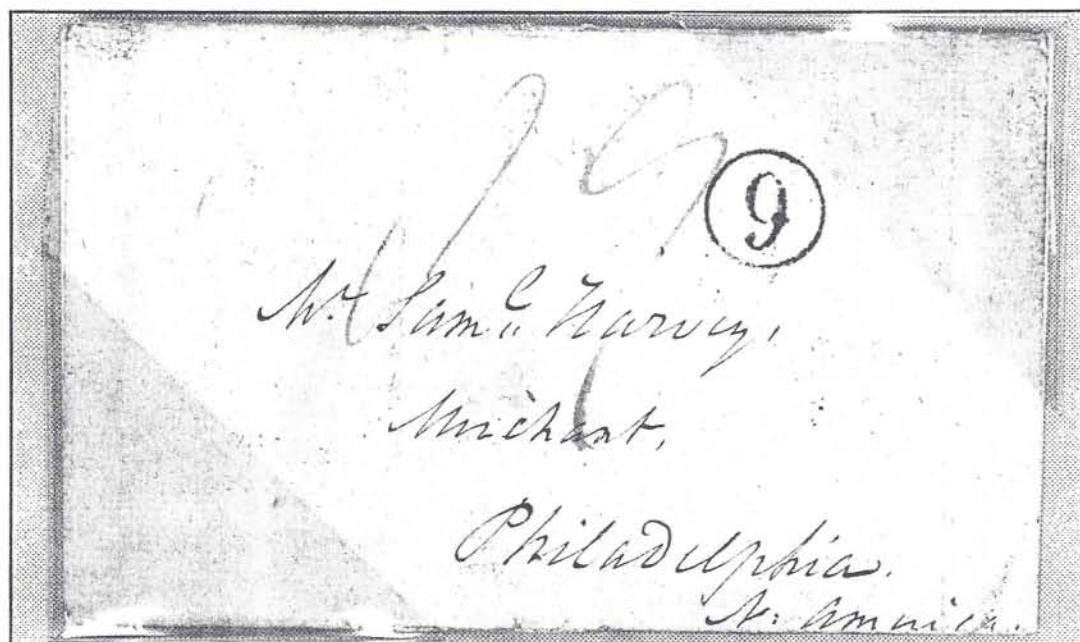 9
Mr. Saml. Harvey,
Merchant,
Philadelphia.
N. America.